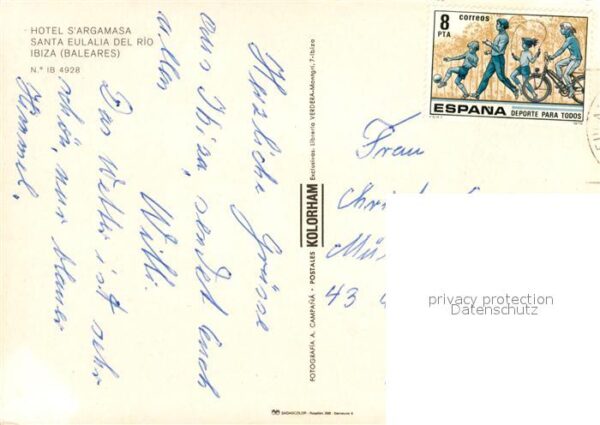 HOTEL S'ARGAMASA
SANTA EULALIA DEL RÍO
IBIZA (BALEARES)
N.º IB 4928
Herzliche Grüsse
aus Ibiza, sendet Euch
allen
Willi.
Das Wetter ist sehr
schön, nur blauer
Himmel.
FOTOGRAFÍA A. CAMPAÑÁ - POSTALES KOLORHAM
Exclusivas: Librería VERDERA-Montgrí, 7-Ibiza
8
PTA
correos
ESPAÑA DEPORTE PARA TODOS
Frau
43
privacy protection
Datenschutz